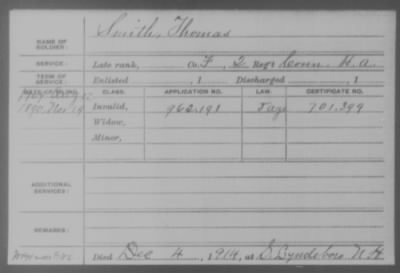 Smith, Thomas
NAME OF SOLDIER:
SERVICE: Late rank, Co. F, 2 Reg't Conn. H. A.
TERM OF SERVICE: Enlisted , 1 Discharged , 1
DATE OF FILING. CLASS. APPLICATION NO. LAW. CERTIFICATE NO.
1890 Nov 19 Invalid, 962.191 701.399
Widow,
Minor,
ADDITIONAL SERVICES:
REMARKS:
Died Dec 4, 1914, at S. Lyndeboro N. H.